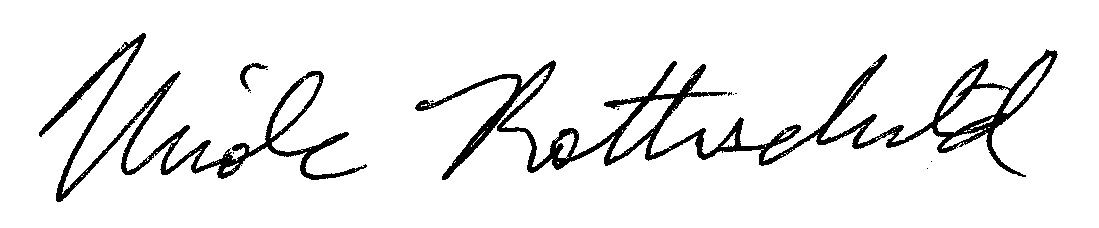 Nicole Rothschild